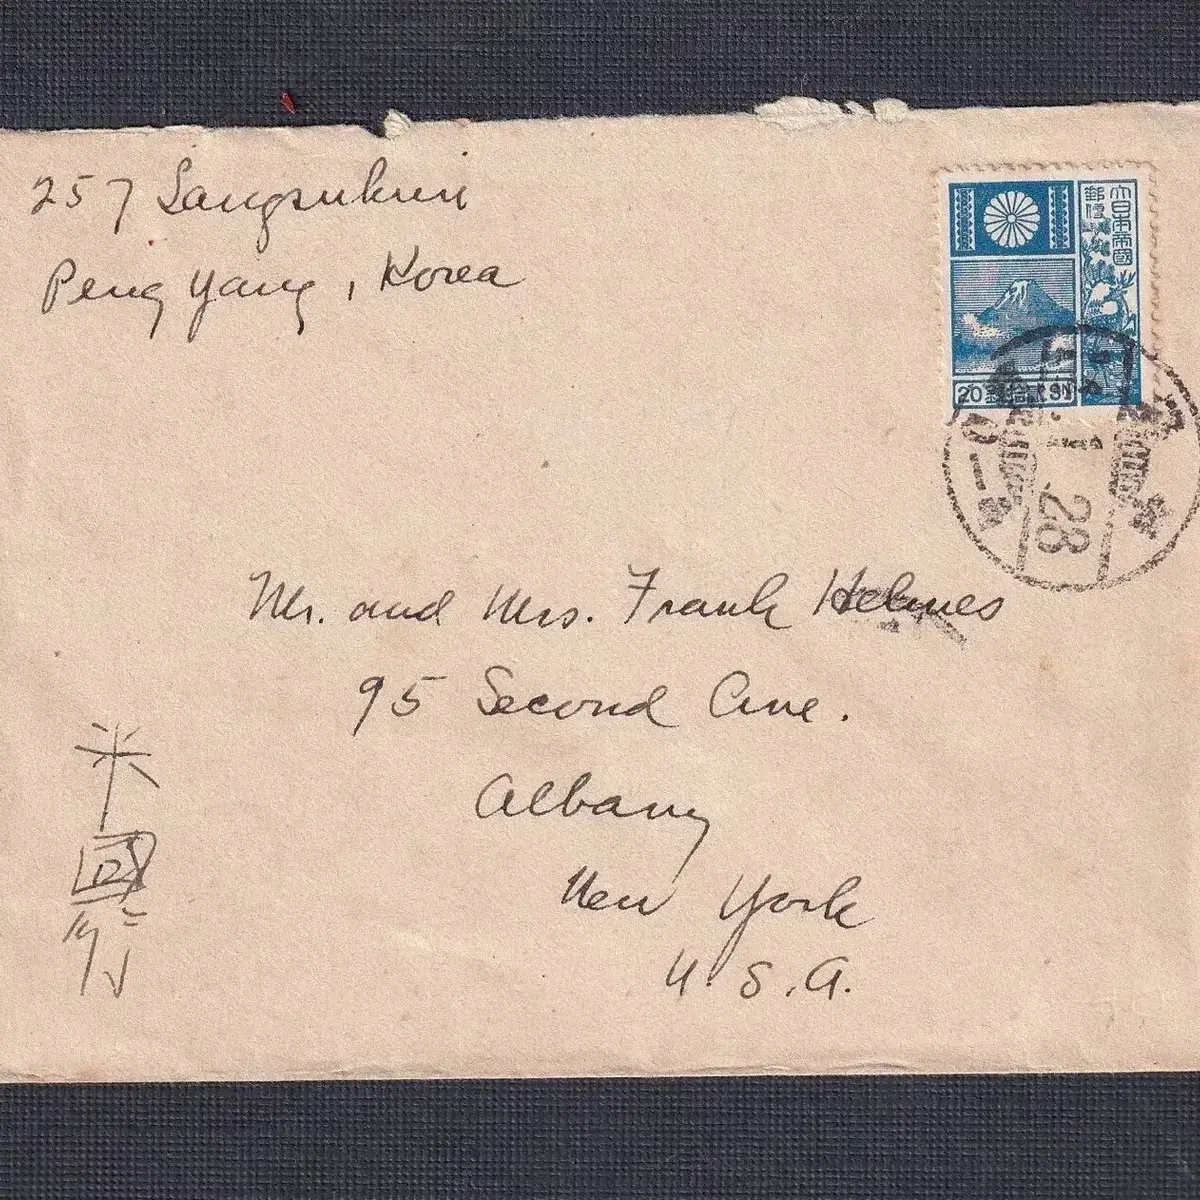 257 Sangsukuri
Peng Yang, Korea
大日本帝國
郵便
20 銭拾貳 SN
28
Mr. and Mrs. Frank Helmes
95 Second Ave.
Albany
New York
U.S.A.
米國行